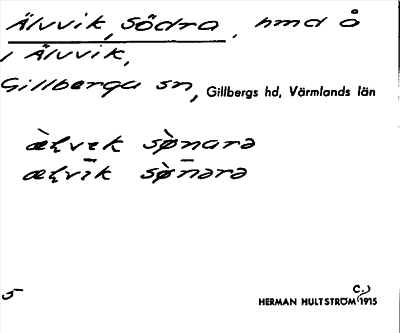 Älvvik, Södra, hmd å
i Älvvik,
Gillberga sn, Gillbergs hd, Värmlands län
æ̀ɽvɩk sø̀narə
æ̀ɽvīk sø̀n̄ərə
5
HERMAN HULTSTRÖM C:) 1915